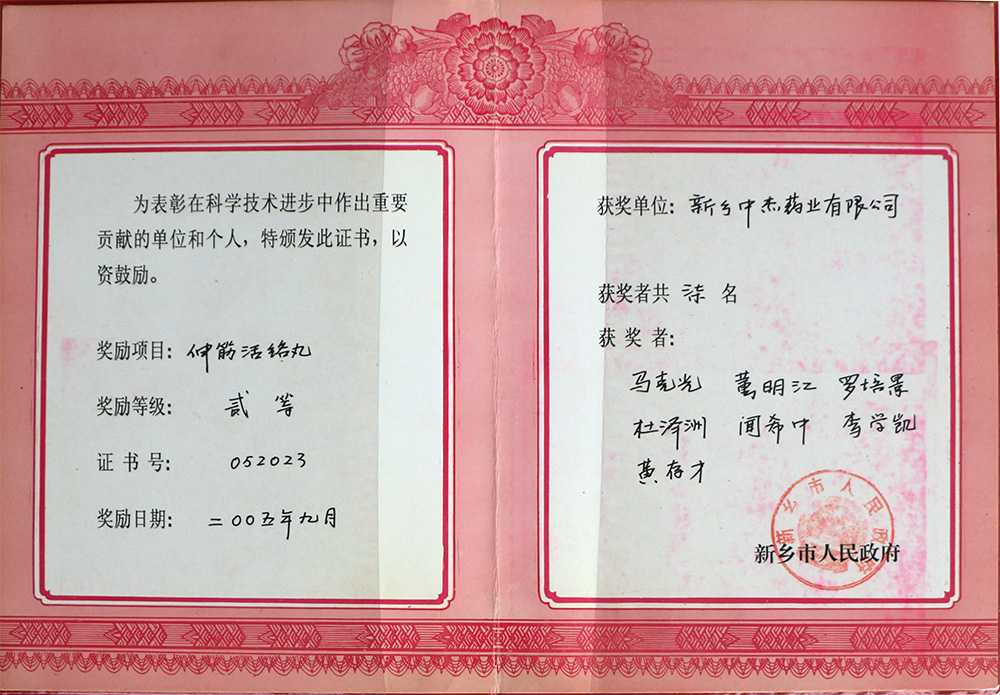 为表彰在科学技术进步中作出重要
贡献的单位和个人，特颁发此证书，以
资鼓励。
奖励项目：伸筋活络丸
奖励等级：贰等
证书号：052023
奖励日期：二00五年九月
获奖单位：新乡中杰药业有限公司
获奖者共柒名
获奖者：
马克光 万明江 罗培景
杜泽洲 闻希中 李学凯
黄存才
新乡市人民政府
新乡市人民政府